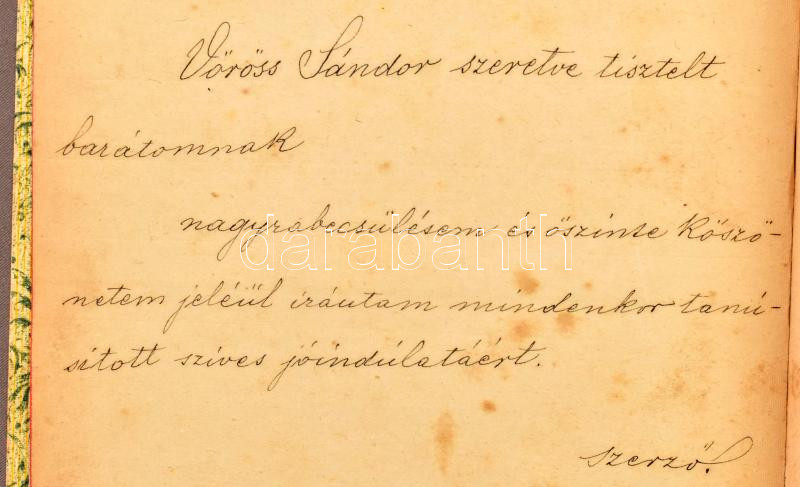 Vöröss Sándor szeretve tisztelt
barátomnak
nagyrabecsülésem és őszinte köszö-
netem jeléül irántam mindenkor tanú-
sitott szives jóindúlatáért.
szerző.
darabanth